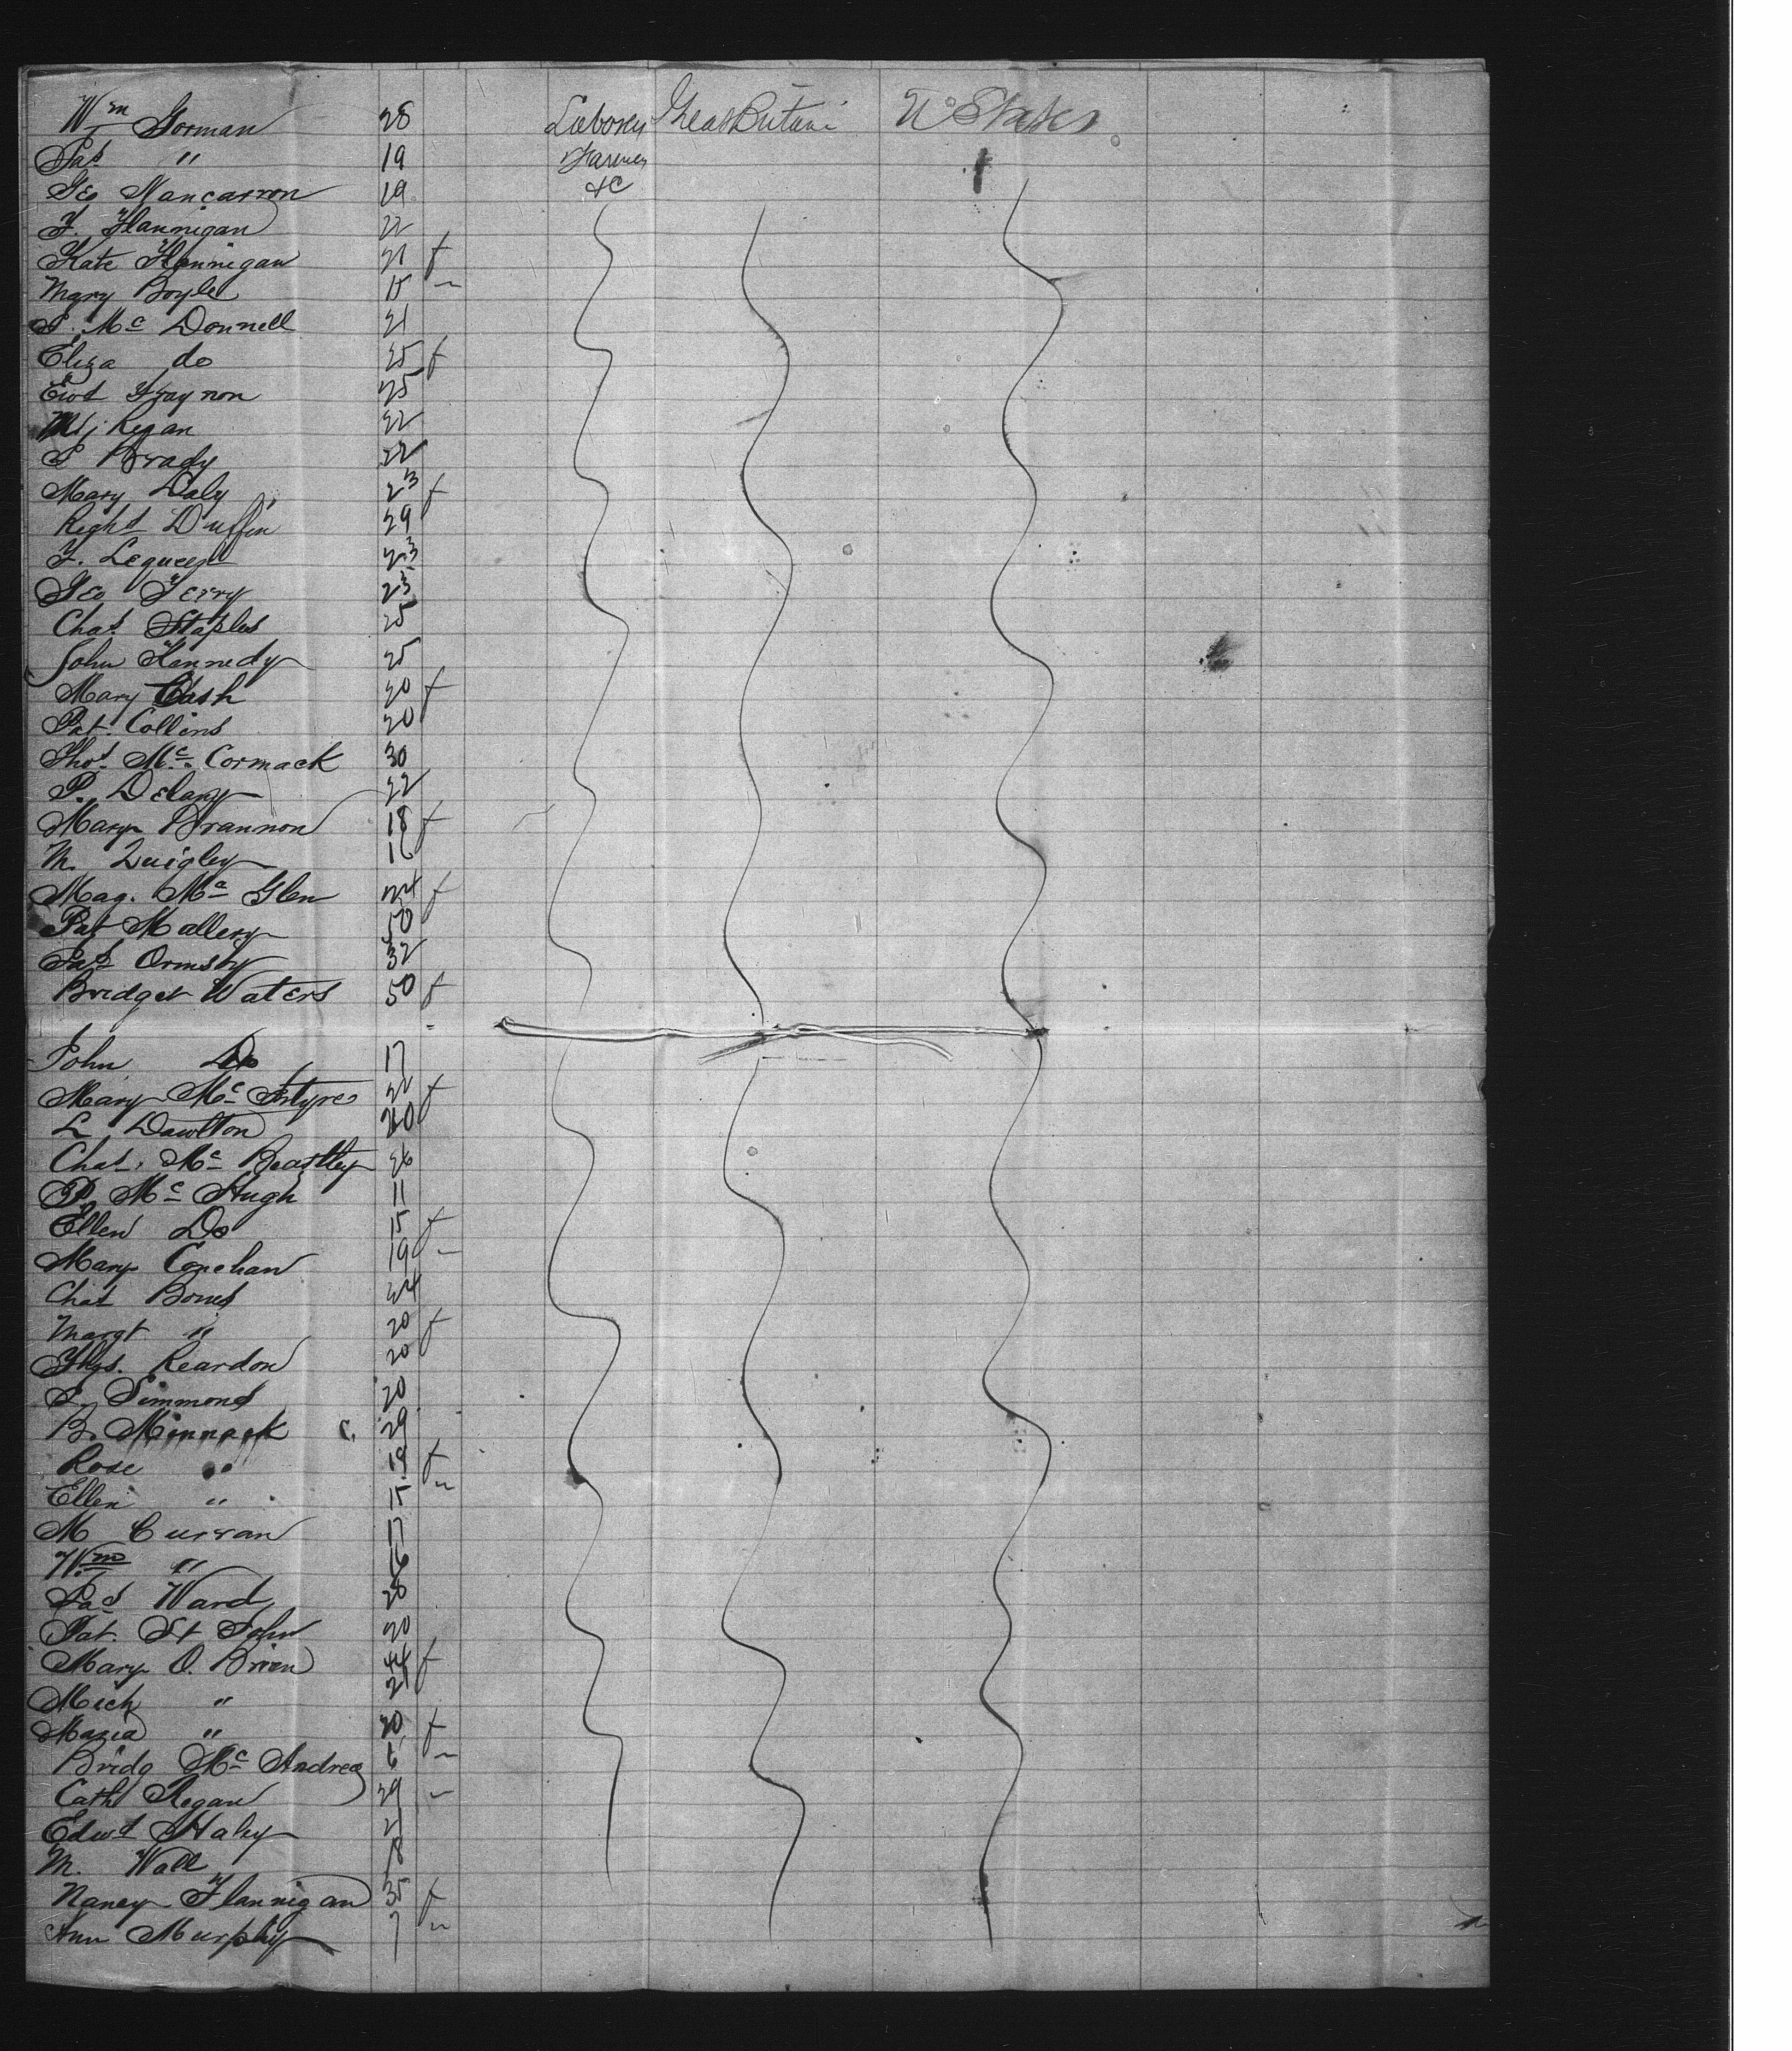 Wm Gorman 28 Laborer Great Britain U States
Jas " 19 Farmer
Geo Nancarron 19 &c
F. Flannigan 22
Kate Flannigan 21 f
Mary Boyle 15 "
P. Mc Donnell 21
Eliza do 25 f
Ewd Graynon 25
Regan 22
P Brady 22
Mary Daly 23 f
Duffin 29
23
Geo Ferry 23
Chas. Staples 25
John Kennedy 25
Mary Cash 20 f
Pat. Collins 20
Thos. Mc. Cormack 30
P. Delany 22
Mary Brannon 18 f
M. Quigley 16
Mag. Mc Glen 24 f
Pat Mallery 50
Jas Ormsby 32
Bridget Waters 50 f
John Do 17
Mary Mc Intyre 22 f
L Dawlton
Chas. Mc Beastley 26
P. Mc Hugh 11
Ellen Do 15 f
Mary Conehan 19 "
Chas Bones 24
Margt " 20 f
Thos. Reardon 20
S. Simmons 20
B. Minnack C. 29
Rose " 19 f
Ellen " 15 "
M Curran 17
Wm " 16
Jas Ward 28
Pat. St John 20
Mary O. Brien 44 f
Mich " 21
Maria " 20 f
Bridg Mc Andrew 6 "
Cath Regan 29 "
Edwd Haley 21
M. Wall 18
Nancy Flannigan 35 f
Ann Murphy 7 "